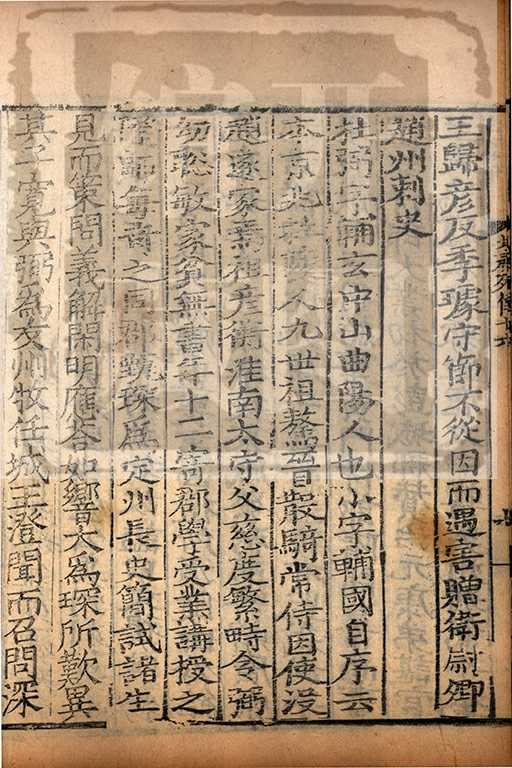 王歸彦反季璩守節不從因而遇害贈衛尉卿
趙州刺史
杜弼字輔玄中山曲陽人也小字輔國自序云
本京兆杜陵人九世祖驁晉散騎常侍因使沒
趙遂家焉祖彦衡淮南太守父慈度繁畤令弼
幼聰敏家貧無書年十二寄郡學受業講授之
際師每奇之同郡甄琛爲定州長史簡試諸生
見而策問義解閑明應荅如響大爲琛所歎異
其子寬與弼為友州牧任城王澄聞而召問深